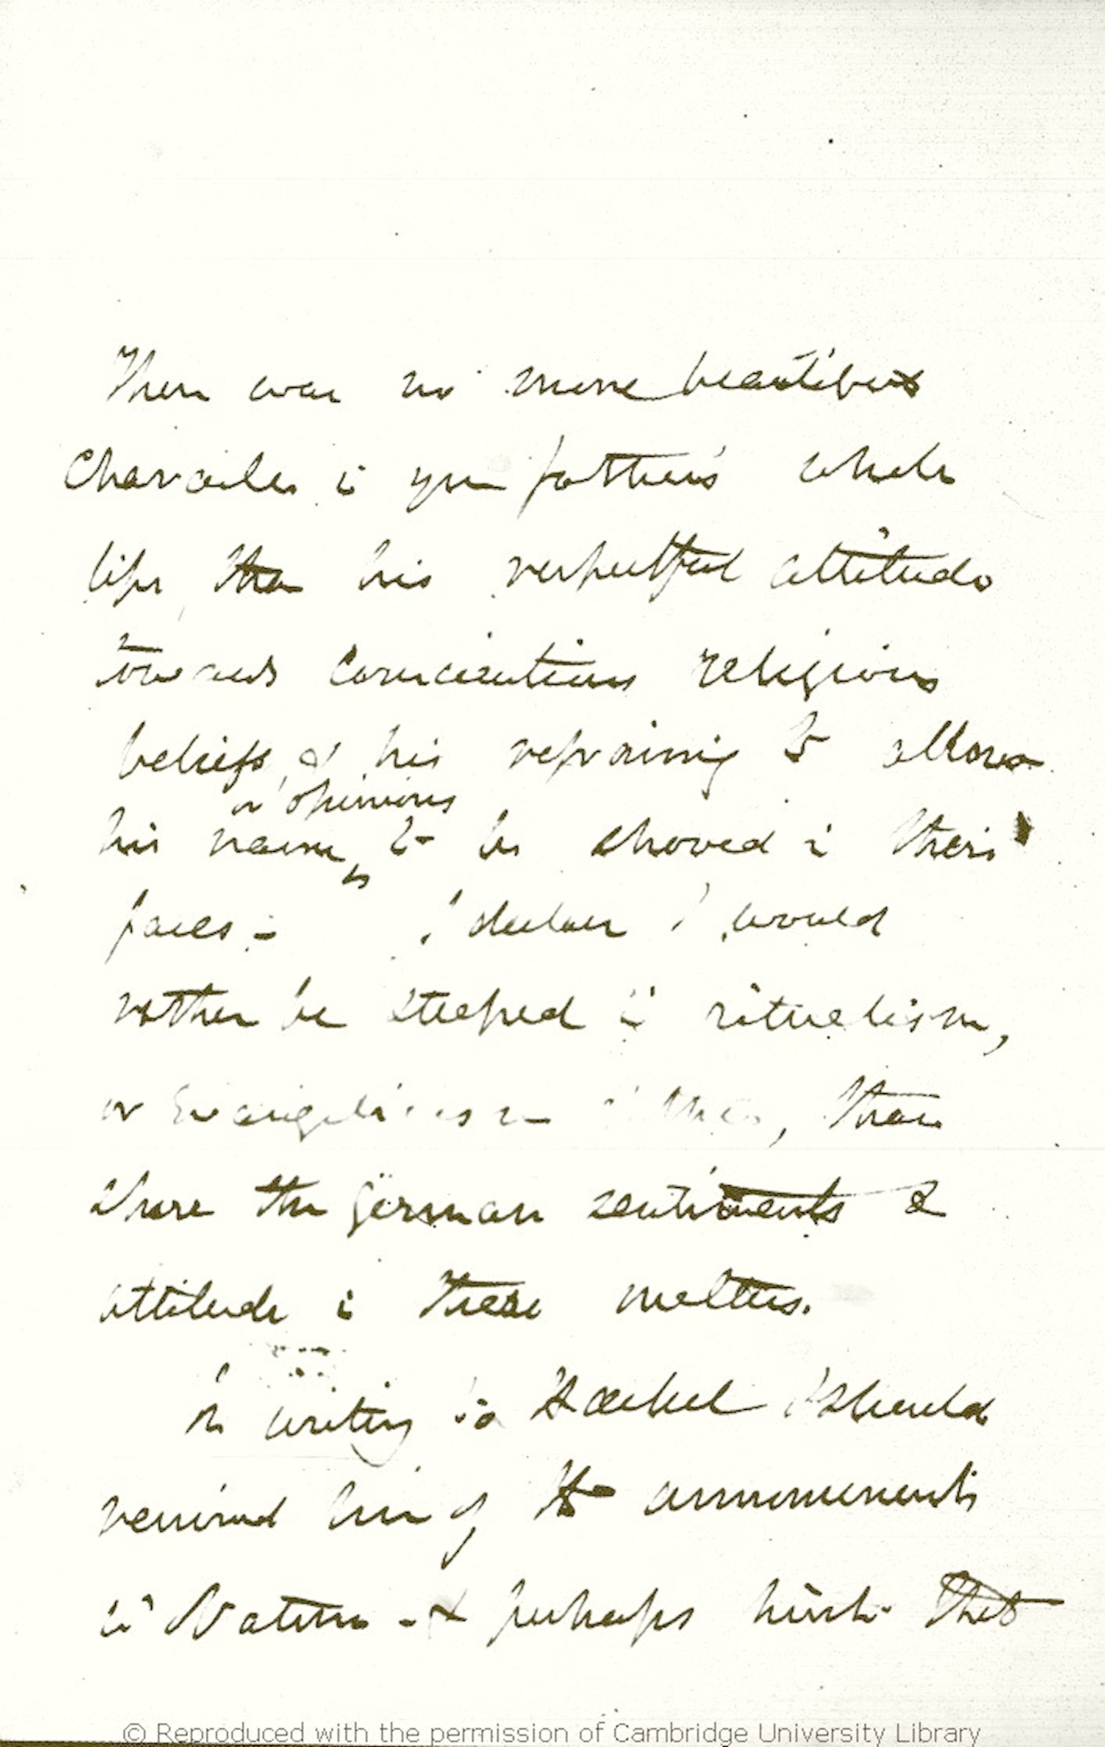 There was no more beautiful
character in your father's whole
life, than his respectful attitude
towards conscientious religious
beliefs, & his refraining to allow
or opinions
his name to be shoved in their
faces — I declare I would
rather be steeped in ritualism,
or Evangelicism, than
share the German sentiments &
attitude in these matters.
In writing to Haeckel I should
remind him of the announcements
in Nature — & perhaps hint that
© Reproduced with the permission of Cambridge University Library